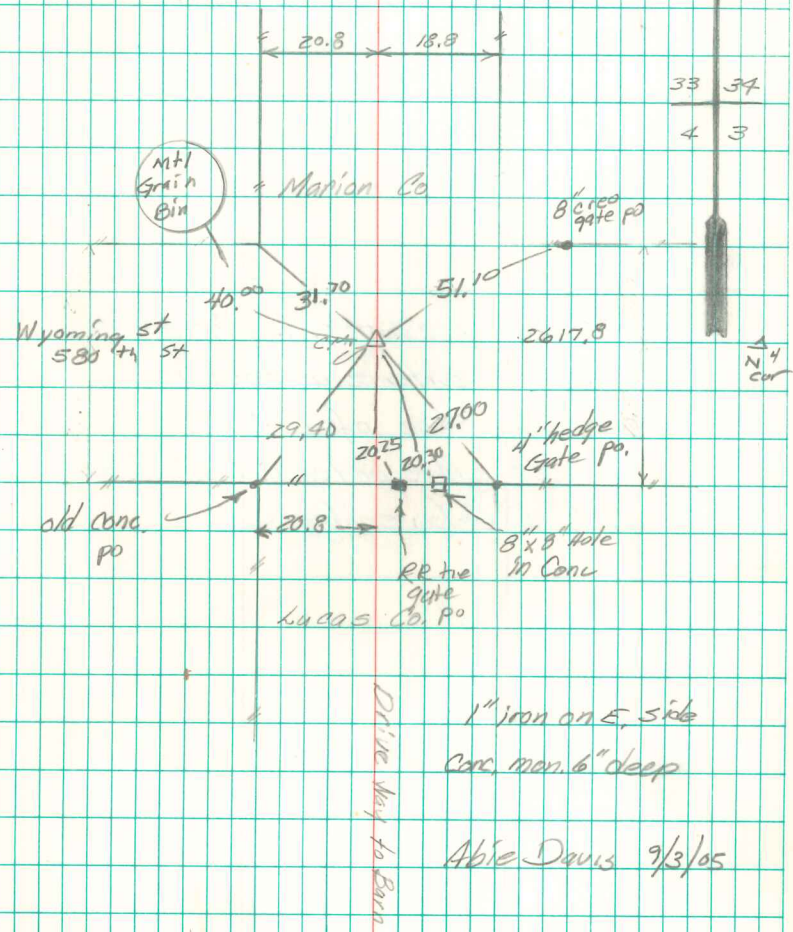 20.8
18.8
33 34
4 3
Mtl
Grain
Bin
Marion Co
8" creo
gate po
40.00
31.70
51.10
Wyoming st
580 th St
2617.8
N 4
cor
29.40
20.25
20.30
27.00
4" hedge
Gate po.
old conc.
po
20.8
8" x 8" Hole
in Conc
RR tie
gate
po
Lucas Co.
Drive Way to Barn
1" iron on E. side
Conc. mon. 6" deep
Abie Davis 9/3/05